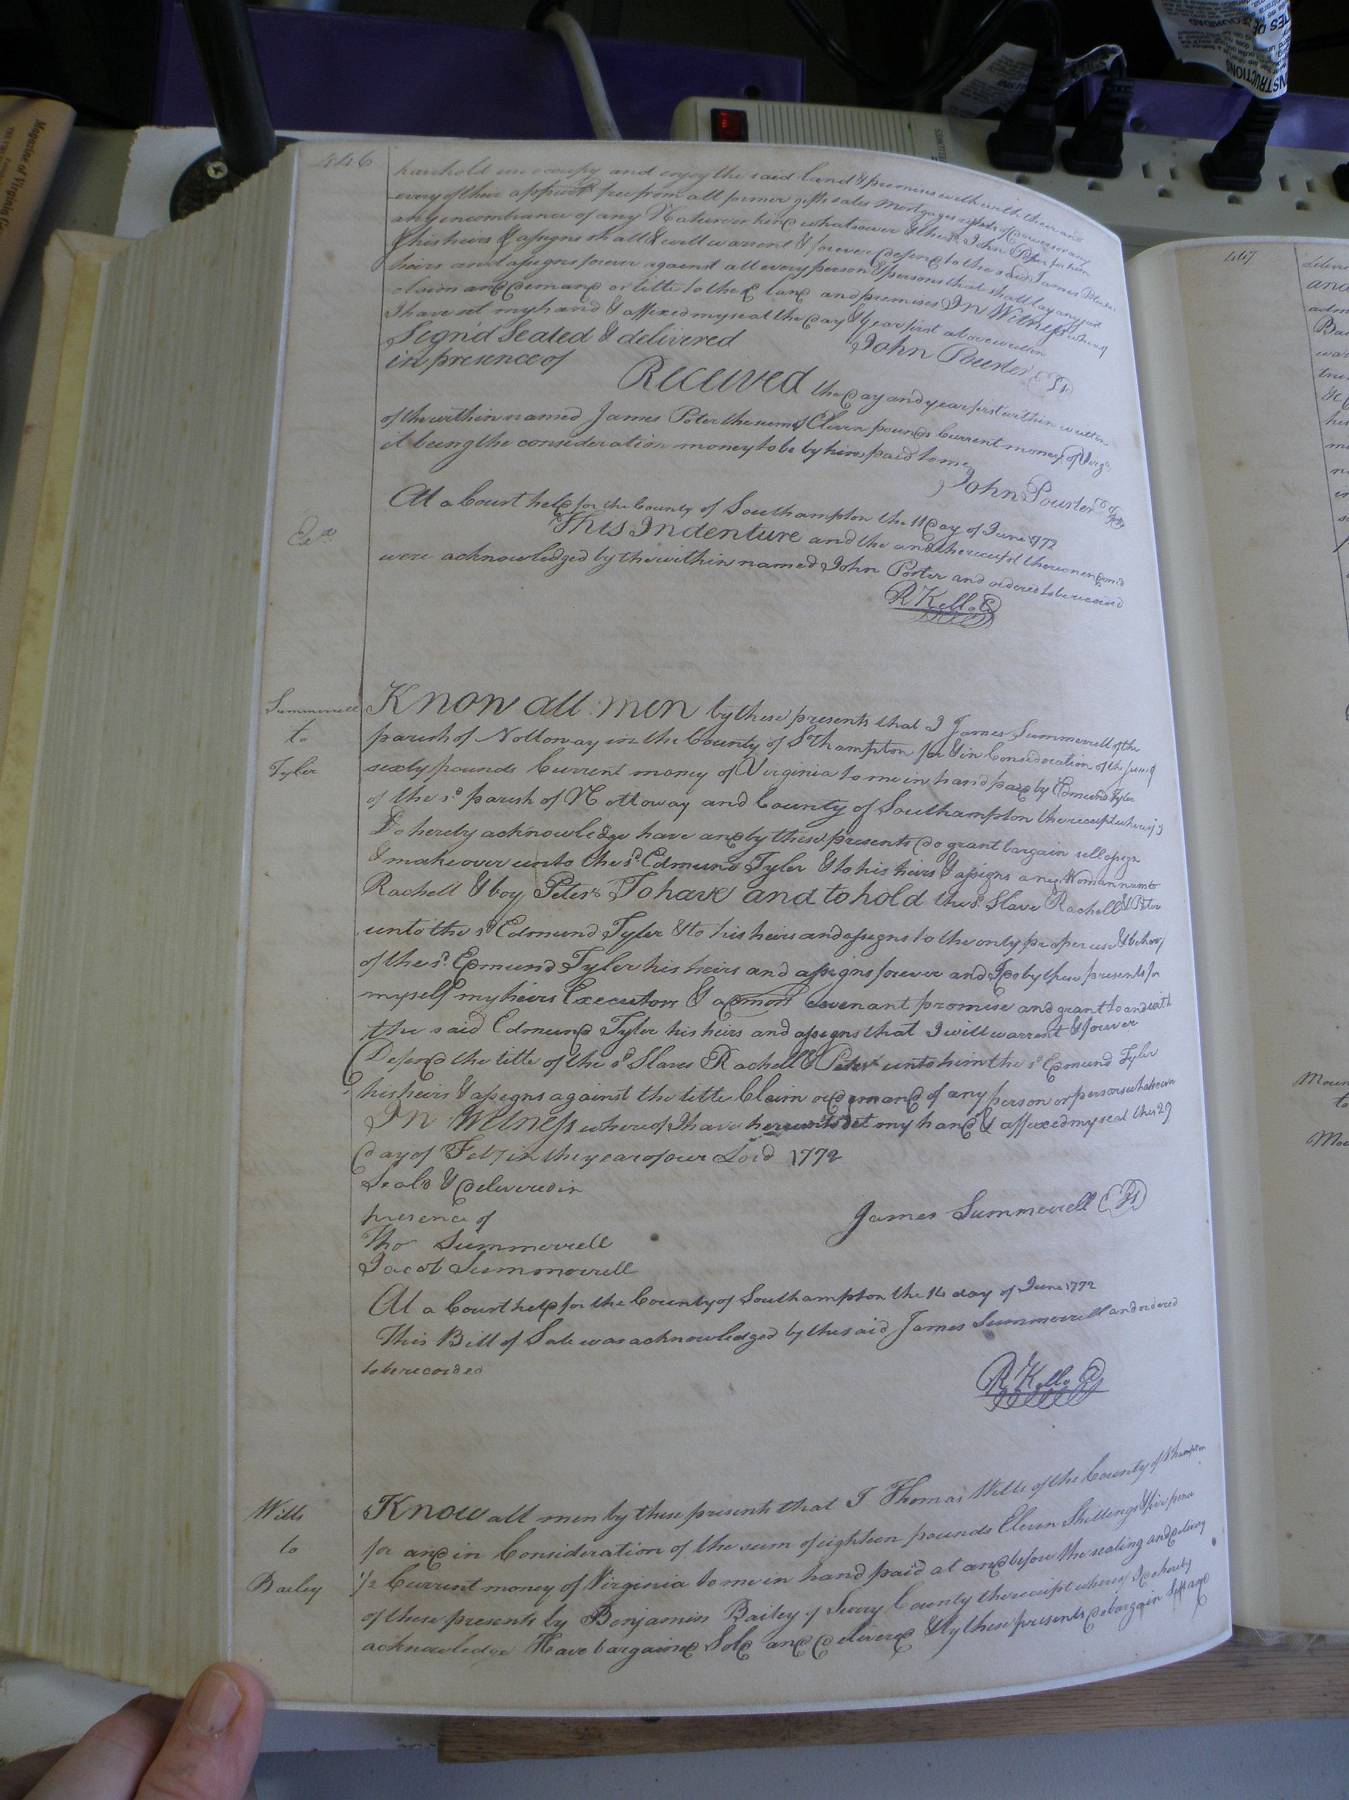 446
have hold occupy and enjoy the said land & premises with their and
every of their appurts free from all former gifts sales Mortgages rights of dower or any
any incumbrance of any Nature or kind whatsoever & the sd John Porter for him
& his heirs & assigns shall & will warrent & forever defend to the said James
heirs and assigns forever against all every person & persons that shall lay any just
claim and demand or title to the sd land and premises In Witness whereof
I have set my hand & affixed my seal the day & year first above written
Sign'd Sealed & delivered
John Pourter
in presence of
Received the day and year first within written
of the within named James Poter the sum of Eleven pounds Current money of Virga
it being the consideration money to be by him paid to me
John Pourter
At a Court held for the County of Southampton the 11 day of June 1772
This Indenture and the and the receipt thereon
were acknowledged by the within named John Porter and ordered to be recorded
R Kello
Summerell
to
Tyler
Know all men by these presents that I James Summerell of the
parish of Nottoway in the County of SThampton for & in Consideration of the sum of
sixty pounds Current money of Virginia to me in hand paid by Edmund Tyler
of the sd parish of Nottoway and County of Southampton the receipt whereof I
Do hereby acknowledge have and by these presents do grant bargain sell assign
& make over unto the sd Edmund Tyler & to his heirs & assigns a neg Woman
Rachell & boy Peter To have and to hold the sd Slave Rachell & Peter
unto the sd Edmund Tyler & to his heirs and assigns to the only proper use & behoof
of the sd Edmund Tyler his heirs and assigns forever and I do by these presents for
myself my heirs Executors & admors covenant promise and grant to and with
the said Edmund Tyler his heirs and assigns that I will warrent & forever
Defend the title of the sd Slaves Rachell & Peter unto him the sd Edmund Tyler
his heirs & assigns against the title Claim or demand of any person or persons whatsoever
In Witness whereof I have hereunto set my hand & affixed my seal this 29
day of in the year of our Lord 1772
Seald & delivered in
presence of
James Summerell
Tho Summerrell
Jacob Summorrell
At a Court held for the County of Southampton the 11 day of June 1772
This Bill of Sale was acknowledged by the said James Summerrell and ordered
to be recorded
R Kello
Wills
to
Bailey
Know all men by these presents that I Thomas Wills of the County of
for and in Consideration of the sum of eighteen pounds Eleven Shillings & six pence
1/2 Current money of Virginia to me in hand paid at and before the sealing and delivery
of these presents by Benjamin Bailey of Surry County the receipt whereof I do hereby
acknowledge Have bargained Sold and delivered & by these presents do bargain Sell and
447
Magazine of Virginia
INSTRUCTIONS